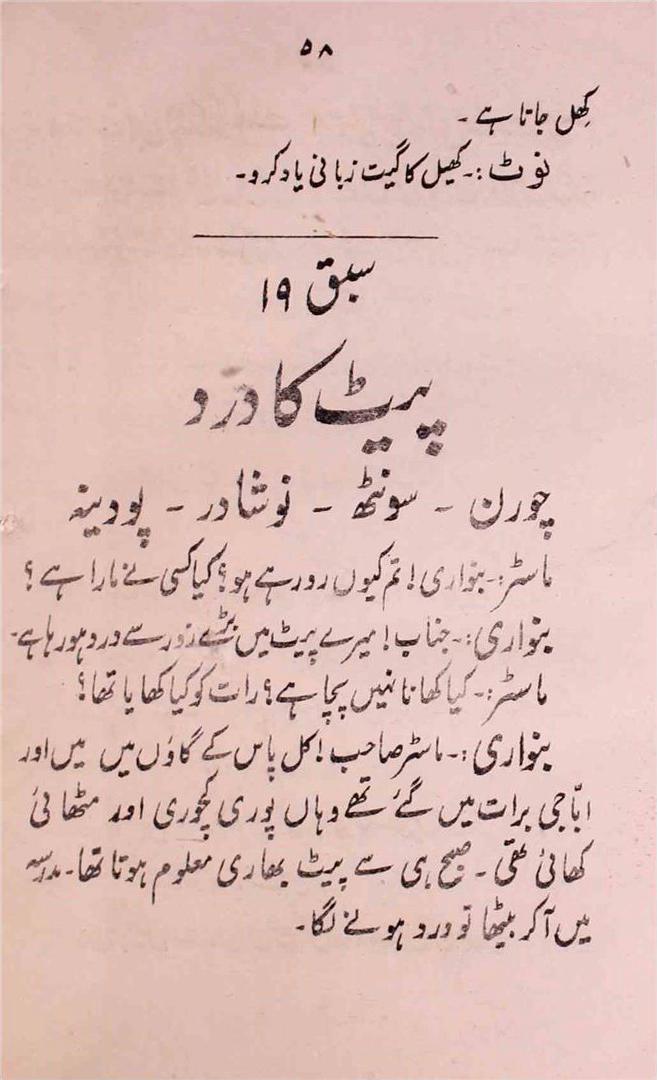 ۵۸
کھِل جاتا ہے ۔
نوٹ :۔ کھیل کا گیت زبانی یاد کرو ۔
سبق ۱۹
پیٹ کا درد
چورن ۔ سونٹھ ۔ نوشادر ۔ پودینہ
ماسٹر :۔ بنواری ! تم کیوں رو رہے ہو ؟ کیا کسی نے مارا ہے ؟
بنواری :۔ جناب ! میرے پیٹ میں بڑے زور سے درد ہو رہا ہے ۔
ماسٹر :۔ کیا کھانا نہیں پچا ہے ؟ رات کو کیا کھایا تھا ؟
بنواری :۔ ماسٹر صاحب ! کل پاس کے گاؤں میں میں اور
ابّا جی برات میں گئے تھے وہاں پوری کچوری اور مٹھائی
کھائی تھی ۔ صبح ہی سے پیٹ بھاری معلوم ہوتا تھا ۔ مدرسہ
میں آ کر بیٹھا تو درد ہونے لگا ۔